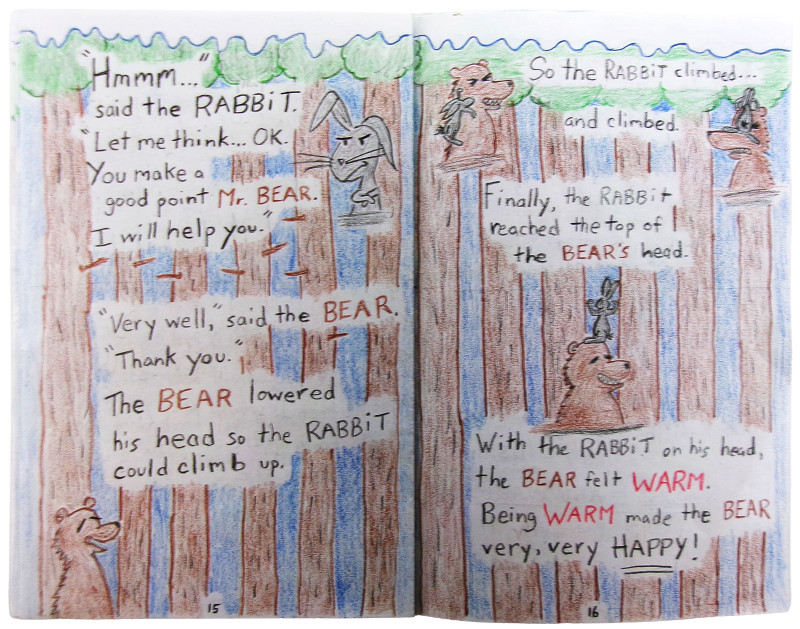 "Hmmm..."
said the RABBiT.
"Let me think... OK.
You make a
good point Mr. BEAR.
I will help you."
"Very well," said the BEAR.
"Thank you."
The BEAR lowered
his head so the RABBiT
could climb up.
15
So the RABBiT climbed...
and climbed.
Finally, the RABBiT
reached the top of
the BEAR'S head.
With the RABBiT on his head,
the BEAR felt WARM.
Being WARM made the BEAR
very, very HAPPY!
16